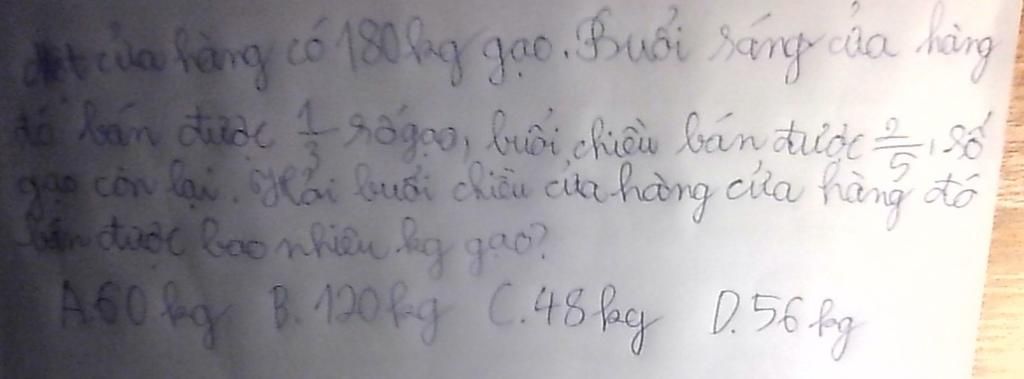 một cửa hàng có 180kg gạo. Buổi sáng cửa hàng
đó bán được 1/3 số gạo, buổi chiều bán được 2/5 số
gạo còn lại. Hỏi buổi chiều cửa hàng cửa hàng đó
bán được bao nhiêu kg gạo?
A.60 kg B. 120kg C.48 kg D.56 kg